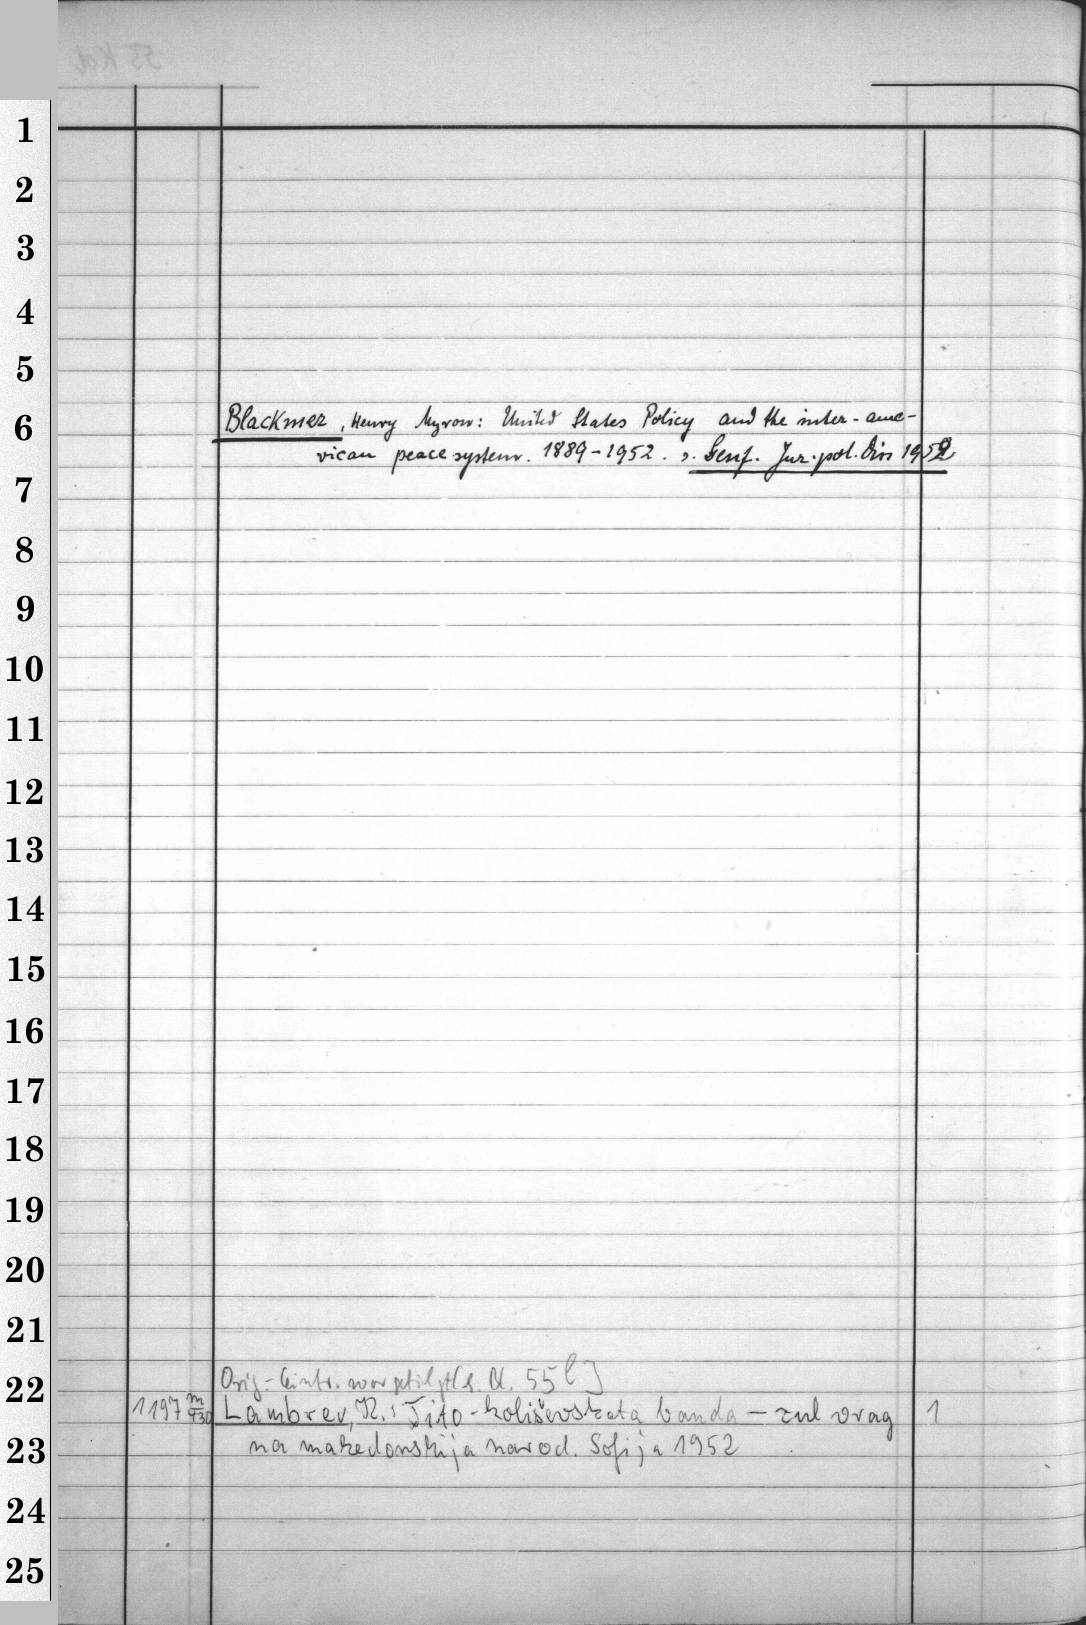 1
2
3
4
5
6
7
8
9
10
11
12
13
14
15
16
17
18
19
20
21
22
23
24
25
Blackmer, Henry Myron: United States Policy and the inter-ame-
rican peace system. 1889-1952. s. Genf. Jur.-pol. Diss 1952
Orig.- 55 l]
1197 m 930 Lambrev, K.: Tito-koliševskata banda – zul vrag 1
na makedonskija narod. Sofija 1952